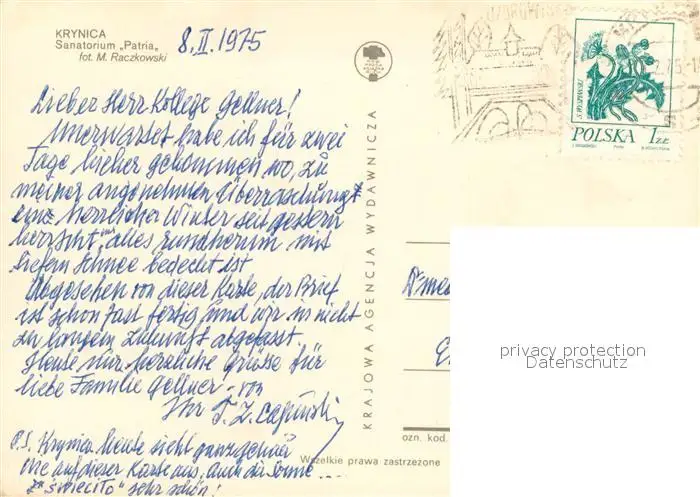 KRYNICA
Sanatorium „Patria„
fot. M. Raczkowski
8.II.1975
Lieber Herr Kollege Gellner!
Unerwartet habe ich für zwei
Tage hieher gekommen wo, zu
meiner angenehmen Überraschung
ein herrlicher Winter seit gestern
herrscht und alles rundherum mit
tiefem Schnee bedeckt ist
Abgesehen von dieser Karte, der Brief
ist schon fast fertig und wir in nicht
zu langem Zukunft abgefasst.
Heute nur herzliche Grüsse für
liebe Familie Gellner - von
Ihr T. Z.
P.S. Krynica heute sieht ganz genau
wie auf dieser Karte aus, auch die Sonne ...
"świeciło" sehr schön!
KRAJOWA AGENCJA WYDAWNICZA
S. WYSPIAŃSKI
POLSKA 1ZŁ
Dr med
ozn. kod.
Wszelkie prawa zastrzeżone
privacy protection
Datenschutz